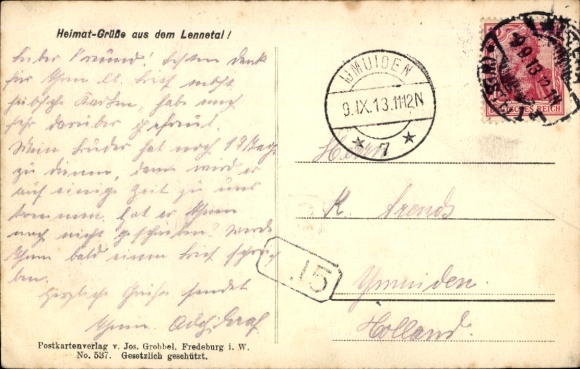 Heimat-Grüße aus dem Lennetal!
Lieber Freund! Schönen Dank
für Ihren Brief nebst
hübsche Karten, habe mich
sehr darüber gefreut.
Mein Bruder hat noch 18 Tage
zu dienen, dann wird er
auf einige Zeit zu uns
kommen, hat er Ihnen
noch nicht geschrieben? Werde
Ihnen bald einen Brief schrei-
ben.
Herzliche Grüße sendet
Ihnen Aug. Graf
Postkartenverlag v. Jos. Grobbel, Fredeburg i. W.
No. 537. Gesetzlich geschützt.
IJMUIDEN
9.IX.13.11-12N
* 7 *
DEUTSCHES REICH
Herrn
K. Arends
Ymuiden.
Holland.
15